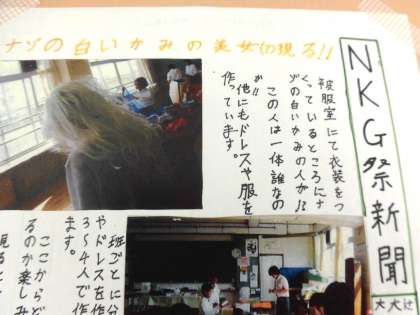 NKG祭新聞
ナゾの白いかみの美女現る!!
被服室にて衣装をつ
くっているところにナ
ゾの白いかみの人が!?
この人は一体誰なの
か!!
他にもドレスや服を
作っています。
班ごとに分
やドレスを作
3〜4人で作
ます。
ここからど
るのか楽しみ